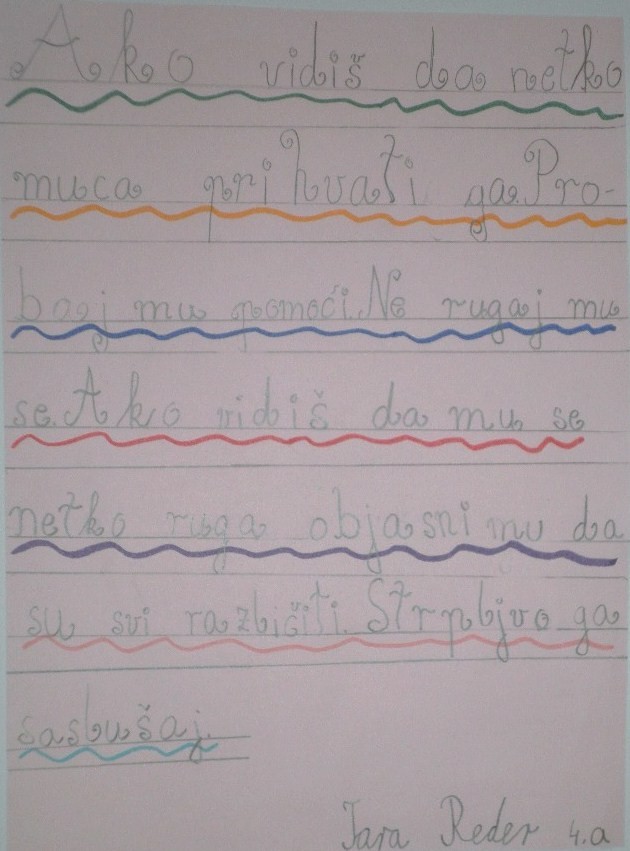 Ako vidiš da netko
muca prihvati ga. Pro-
baj mu pomoći. Ne rugaj mu
se. Ako vidiš da mu se
netko ruga objasni mu da
su svi različiti. Strpljvo ga
saslušaj.
Tara Reder 4.a